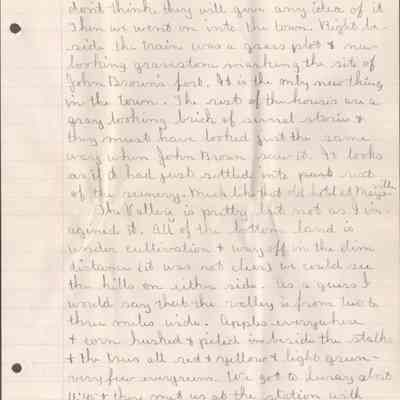 don't think they will give any idea of it
Then we went on into the town. Right be-
side the train was a grass plot & new
looking gravestone marking the site of
John Brown's fort. It is the only new thing
in the town. The rest of the houses are a
gray looking brick of several stories &
they must have looked just the same
way when John Brown saw it. It looks
as if it had just settled into part
of the scenery. Much like that old hotel at
The Valley is pretty but not as I im-
agined it. All of the bottom land is
under cultivation & way off in the dim
distance (it was not clear) we could see
the hills on either side. As a guess I
would say that the valley is from two to
three miles wide. Apples everywhere
& corn husked & piled in beside the stalks
& the trees all red & yellow & light green -
very few evergreen. We got to Luray about
& they met us at the station with